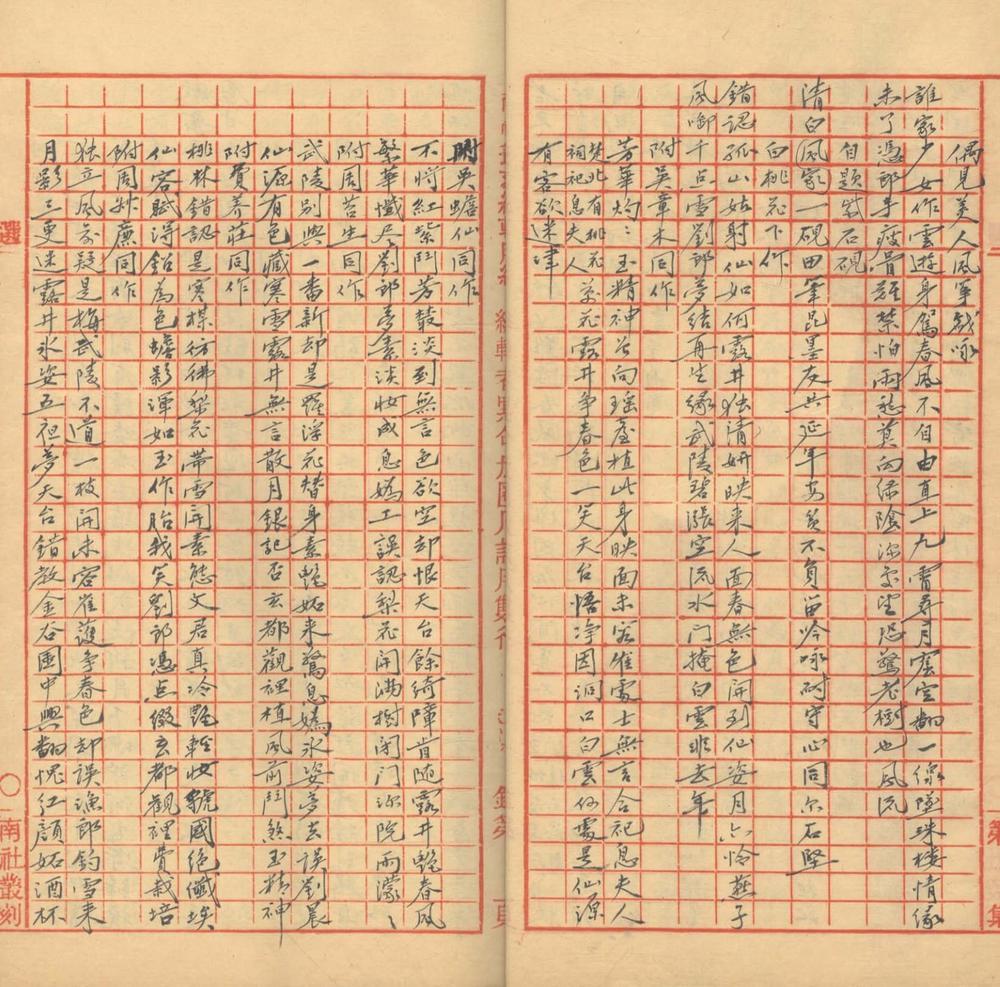 偶見美人風箏戲咏
誰家少女作雲遊身駕春風不自由直上九霄尋月窟空翻一線墜珠樓情緣
未了憑郎手瘦骨難禁怕雨愁莫向綠陰深處望恐驚老樹也風流
自題紫石硯
清白風家一硯田筆昆墨友共延年安貧不負留吟咏耐守心同尔石堅
白桃花下作
錯認孤山姑射仙如何露井独清妍映来人面春無色開到仙姿月亦怜燕子
風啣千点雪劉郎夢结再生緣武陵碧漲空流水门掩白雲非去年
附吳韋木同作
芳華灼灼玉精神合向瑶臺植此身映面未容崔處士無言合祀息夫人
楚北有桃花祠祀息夫人 菜花露井争春色一笑天台悟净因洞口白雲何處是仙源
有客欲迷津
附吳蟾仙同作
不将紅紫鬥芳叢淡到無言色欲空却恨天台餘綺障肯随露井艷春風
繁華懺尽劉郎夢素淡妆成息媯工誤認梨花開满樹闭门深院雨濛濛
附周苔生同作
武陵别與一番新却是羅浮花替身素艷妬来驚息媯冰姿夢去误劉晨
仙源有色藏寒雪露井無言散月銀記否玄都觀裡植風前鬥煞玉精神
附費养莊同作
桃林錯認是寒楳彷彿梨花帶雪開素態文君真冷艷輕妆虢國絶纖埃
仙容賦得鉛為色蟾影渾如玉作胎我笑劉郎憑点缀玄都觀裡費栽培
附周
廉同作
独立風前疑是梅武陵不道一枝開未容崔護争春色却误漁郎釣雪来
月影三更迷露井冰姿五夜夢天台錯教金谷園中興翻愧红颜妬酒杯
選
南社叢刻
第
集
頁